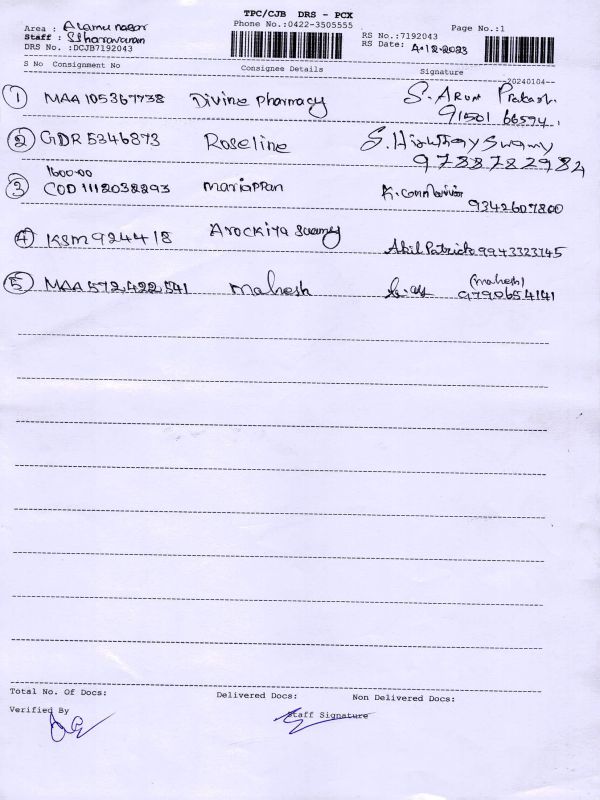 TPC/CJB DRS - PCX
Area : Alamu nagar
Phone No.:0422-3505555
Page No.:1
Staff : S.Sharavanan
RS No.:7192043
DRS No. :DCJB7192043
RS Date: 4-12-2023
S No Consignment No Consignee Details Signature
20240104
1 MAA 105367738 Divine pharmacy S. Arun Prakash
91501 66594
2 GDR 5346873 Roseline
9788782984
1600-00
3 COD 1118038893 mariappan
9342607800
4 KSM 924418 Arockiya swamy
Abil Patrick 9943323145
5 MAA 572422541 mahesh (mahesh)
9790654141
Total No. Of Docs: Delivered Docs: Non Delivered Docs:
Verified By Staff Signature